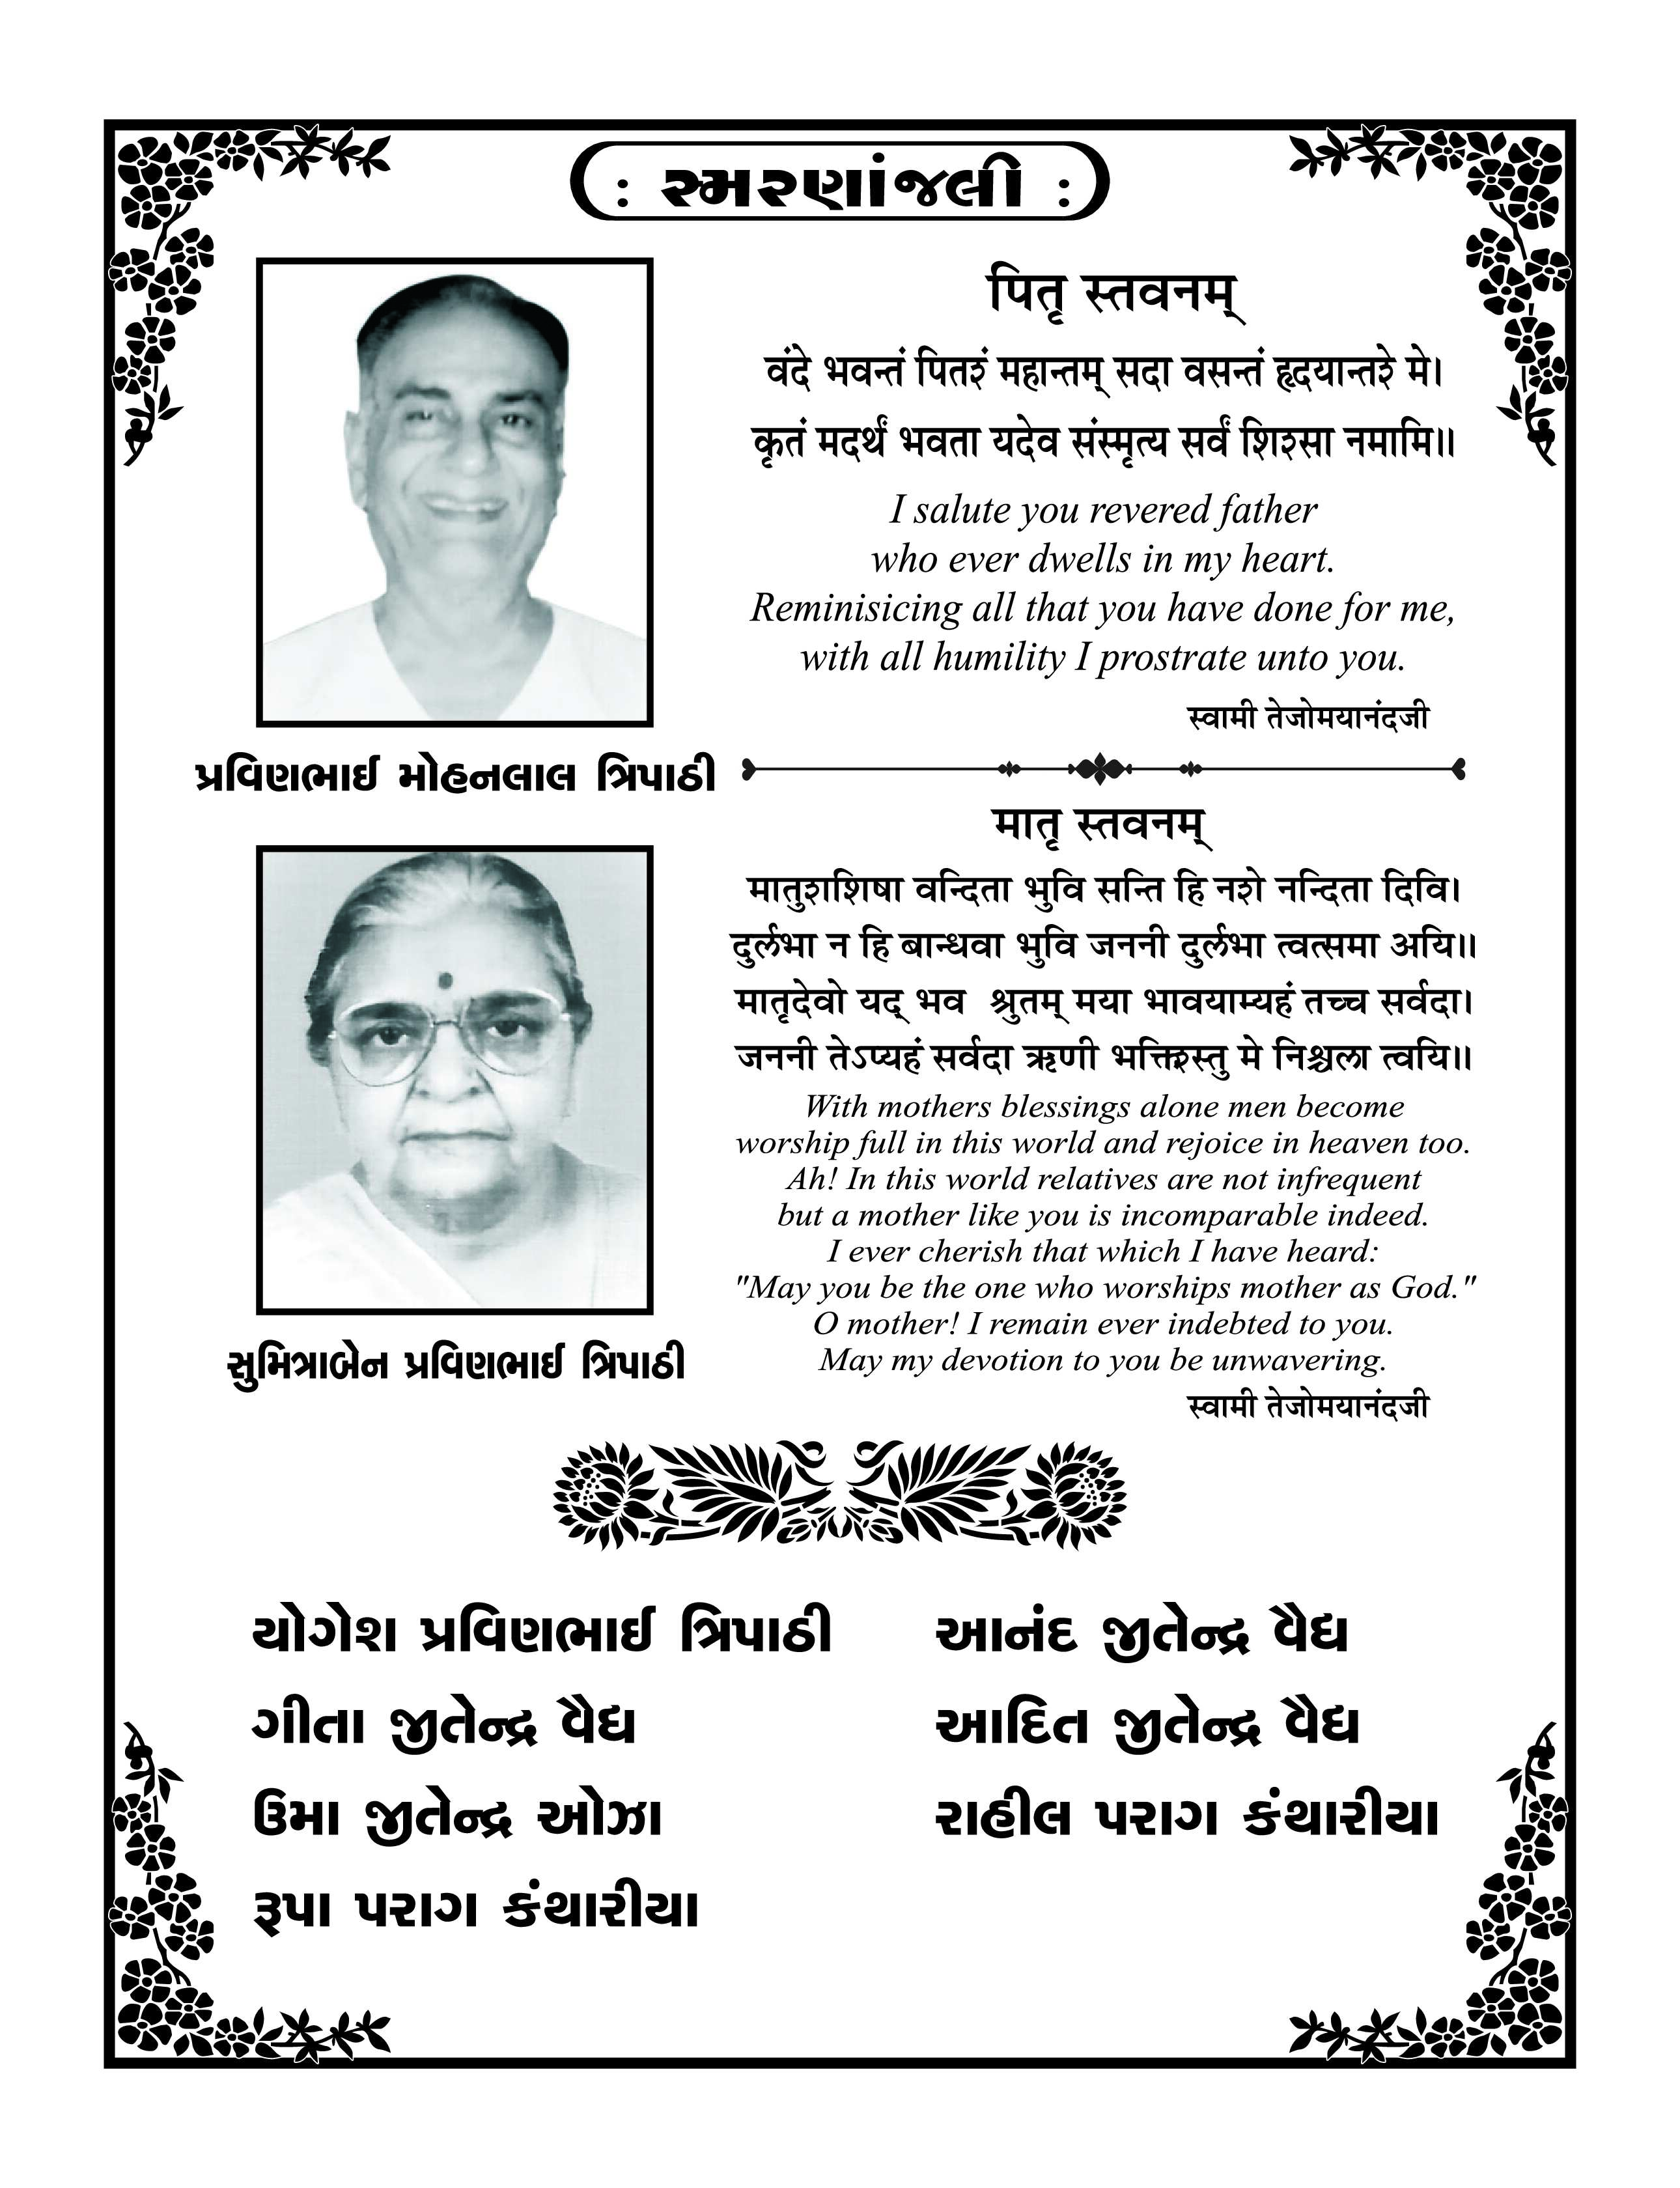 : સ્મરણાંજલી :
पितृ स्तवनम्
वंदे भवन्तं पितरं महान्तम् सदा वसन्तं हृदयान्तरे मे।
कृतं मदर्थं भवता यदेव संस्मृत्य सर्वं शिरसा नमामि॥
I salute you revered father
who ever dwells in my heart.
Reminisicing all that you have done for me,
with all humility I prostrate unto you.
स्वामी तेजोमयानंदजी
પ્રવિણભાઈ મોહનલાલ ત્રિપાઠી
मातृ स्तवनम्
मातुराशिषा वन्दिता भुवि सन्ति हि नरो नन्दिता दिवि।
दुर्लभा न हि बान्धवा भुवि जननी दुर्लभा त्वत्समा अयि॥
मातृदेवो यद् भव श्रुतम् मया भावयाम्यहं तच्च सर्वदा।
जननी तेऽप्यहं सर्वदा ऋणी भक्तिरस्तु मे निश्चला त्वयि॥
With mothers blessings alone men become
worship full in this world and rejoice in heaven too.
Ah! In this world relatives are not infrequent
but a mother like you is incomparable indeed.
I ever cherish that which I have heard:
"May you be the one who worships mother as God."
O mother! I remain ever indebted to you.
May my devotion to you be unwavering.
स्वामी तेजोमयानंदजी
સુમિત્રાબેન પ્રવિણભાઈ ત્રિપાઠી
યોગેશ પ્રવિણભાઈ ત્રિપાઠી
ગીતા જીતેન્દ્ર વૈદ્ય
ઉમા જીતેન્દ્ર ઓઝા
રૂપા પરાગ કંથારીયા
આનંદ જીતેન્દ્ર વૈદ્ય
આદિત જીતેન્દ્ર વૈદ્ય
રાહીલ પરાગ કંથારીયા